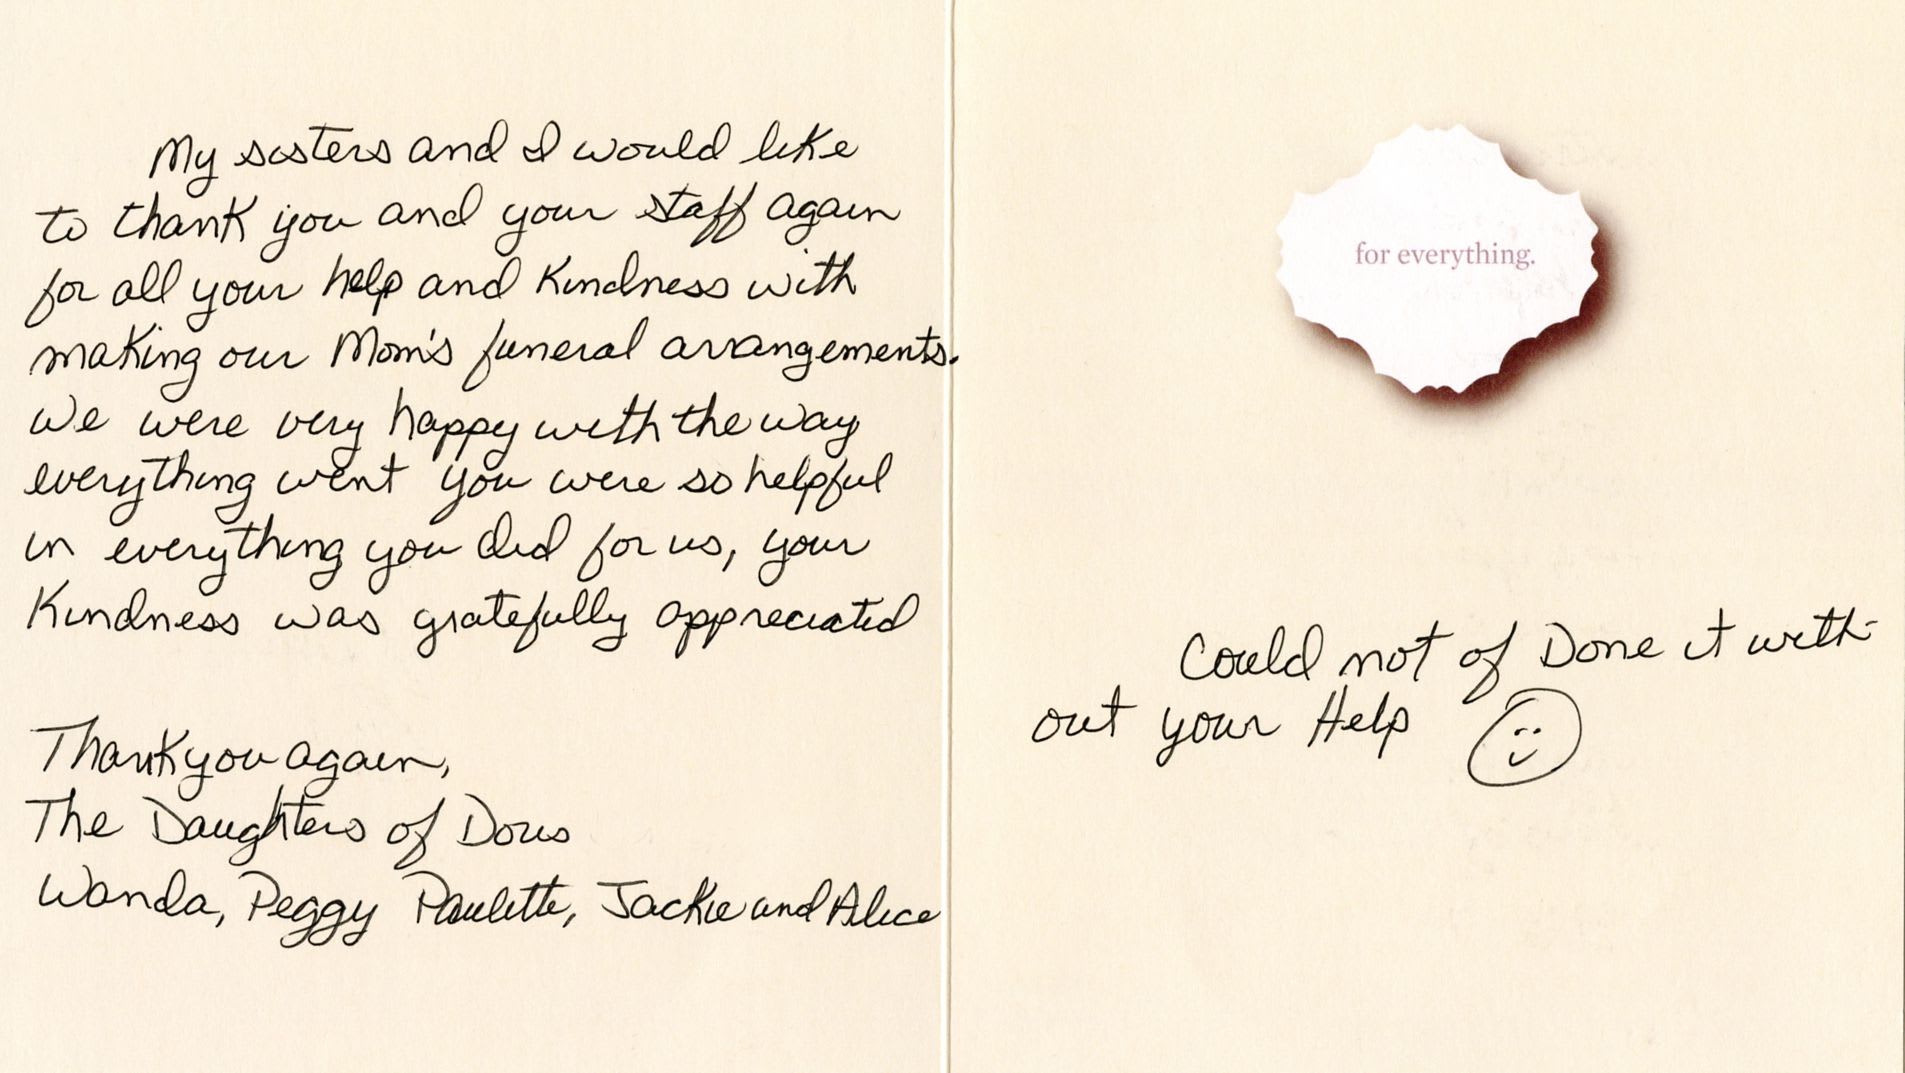 My sisters and I would like
to thank you and your staff again
for all your help and Kindness with
making our Mom's funeral arrangements.
We were very happy with the way
everything went you were so helpful
in everything you did for us, your
Kindness was gratefully appreciated
Thank you again,
The Daughters of Doris
Wanda, Peggy Paulette, Jackie and Alice
for everything.
Could not of Done it with-
out your Help